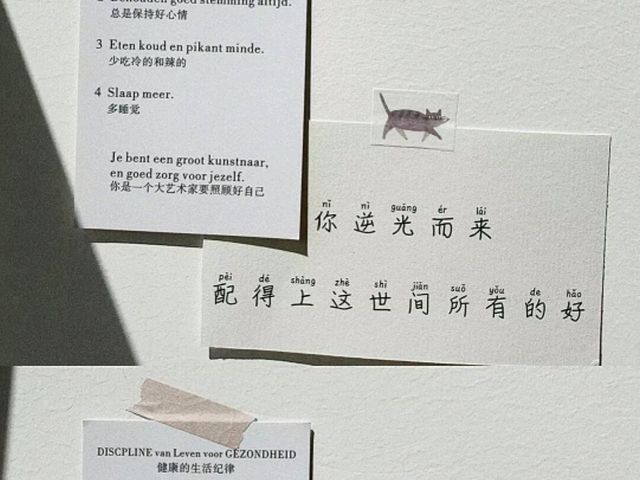 2 Behouden goed stemming altijd.
总是保持好心情
3 Eten koud en pikant minde.
少吃冷的和辣的
4 Slaap meer.
多睡觉
Je bent een groot kunstnaar,
en goed zorg voor jezelf.
你是一个大艺术家要照顾好自己
nǐ nì guāng ér lái
你逆光而来
pèi dé shàng zhè shì jiān suǒ yǒu de hǎo
配得上这世间所有的好
DISCPLINE van Leven voor GEZONDHEID
健康的生活纪律